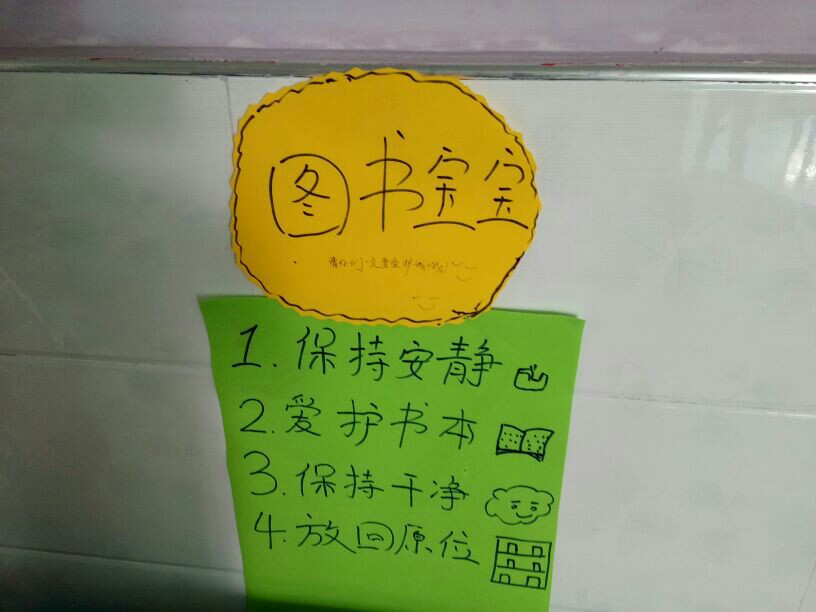 图书宝宝
请你们一定要爱护我哦!
1.保持安静
2.爱护书本
3.保持干净
4.放回原位